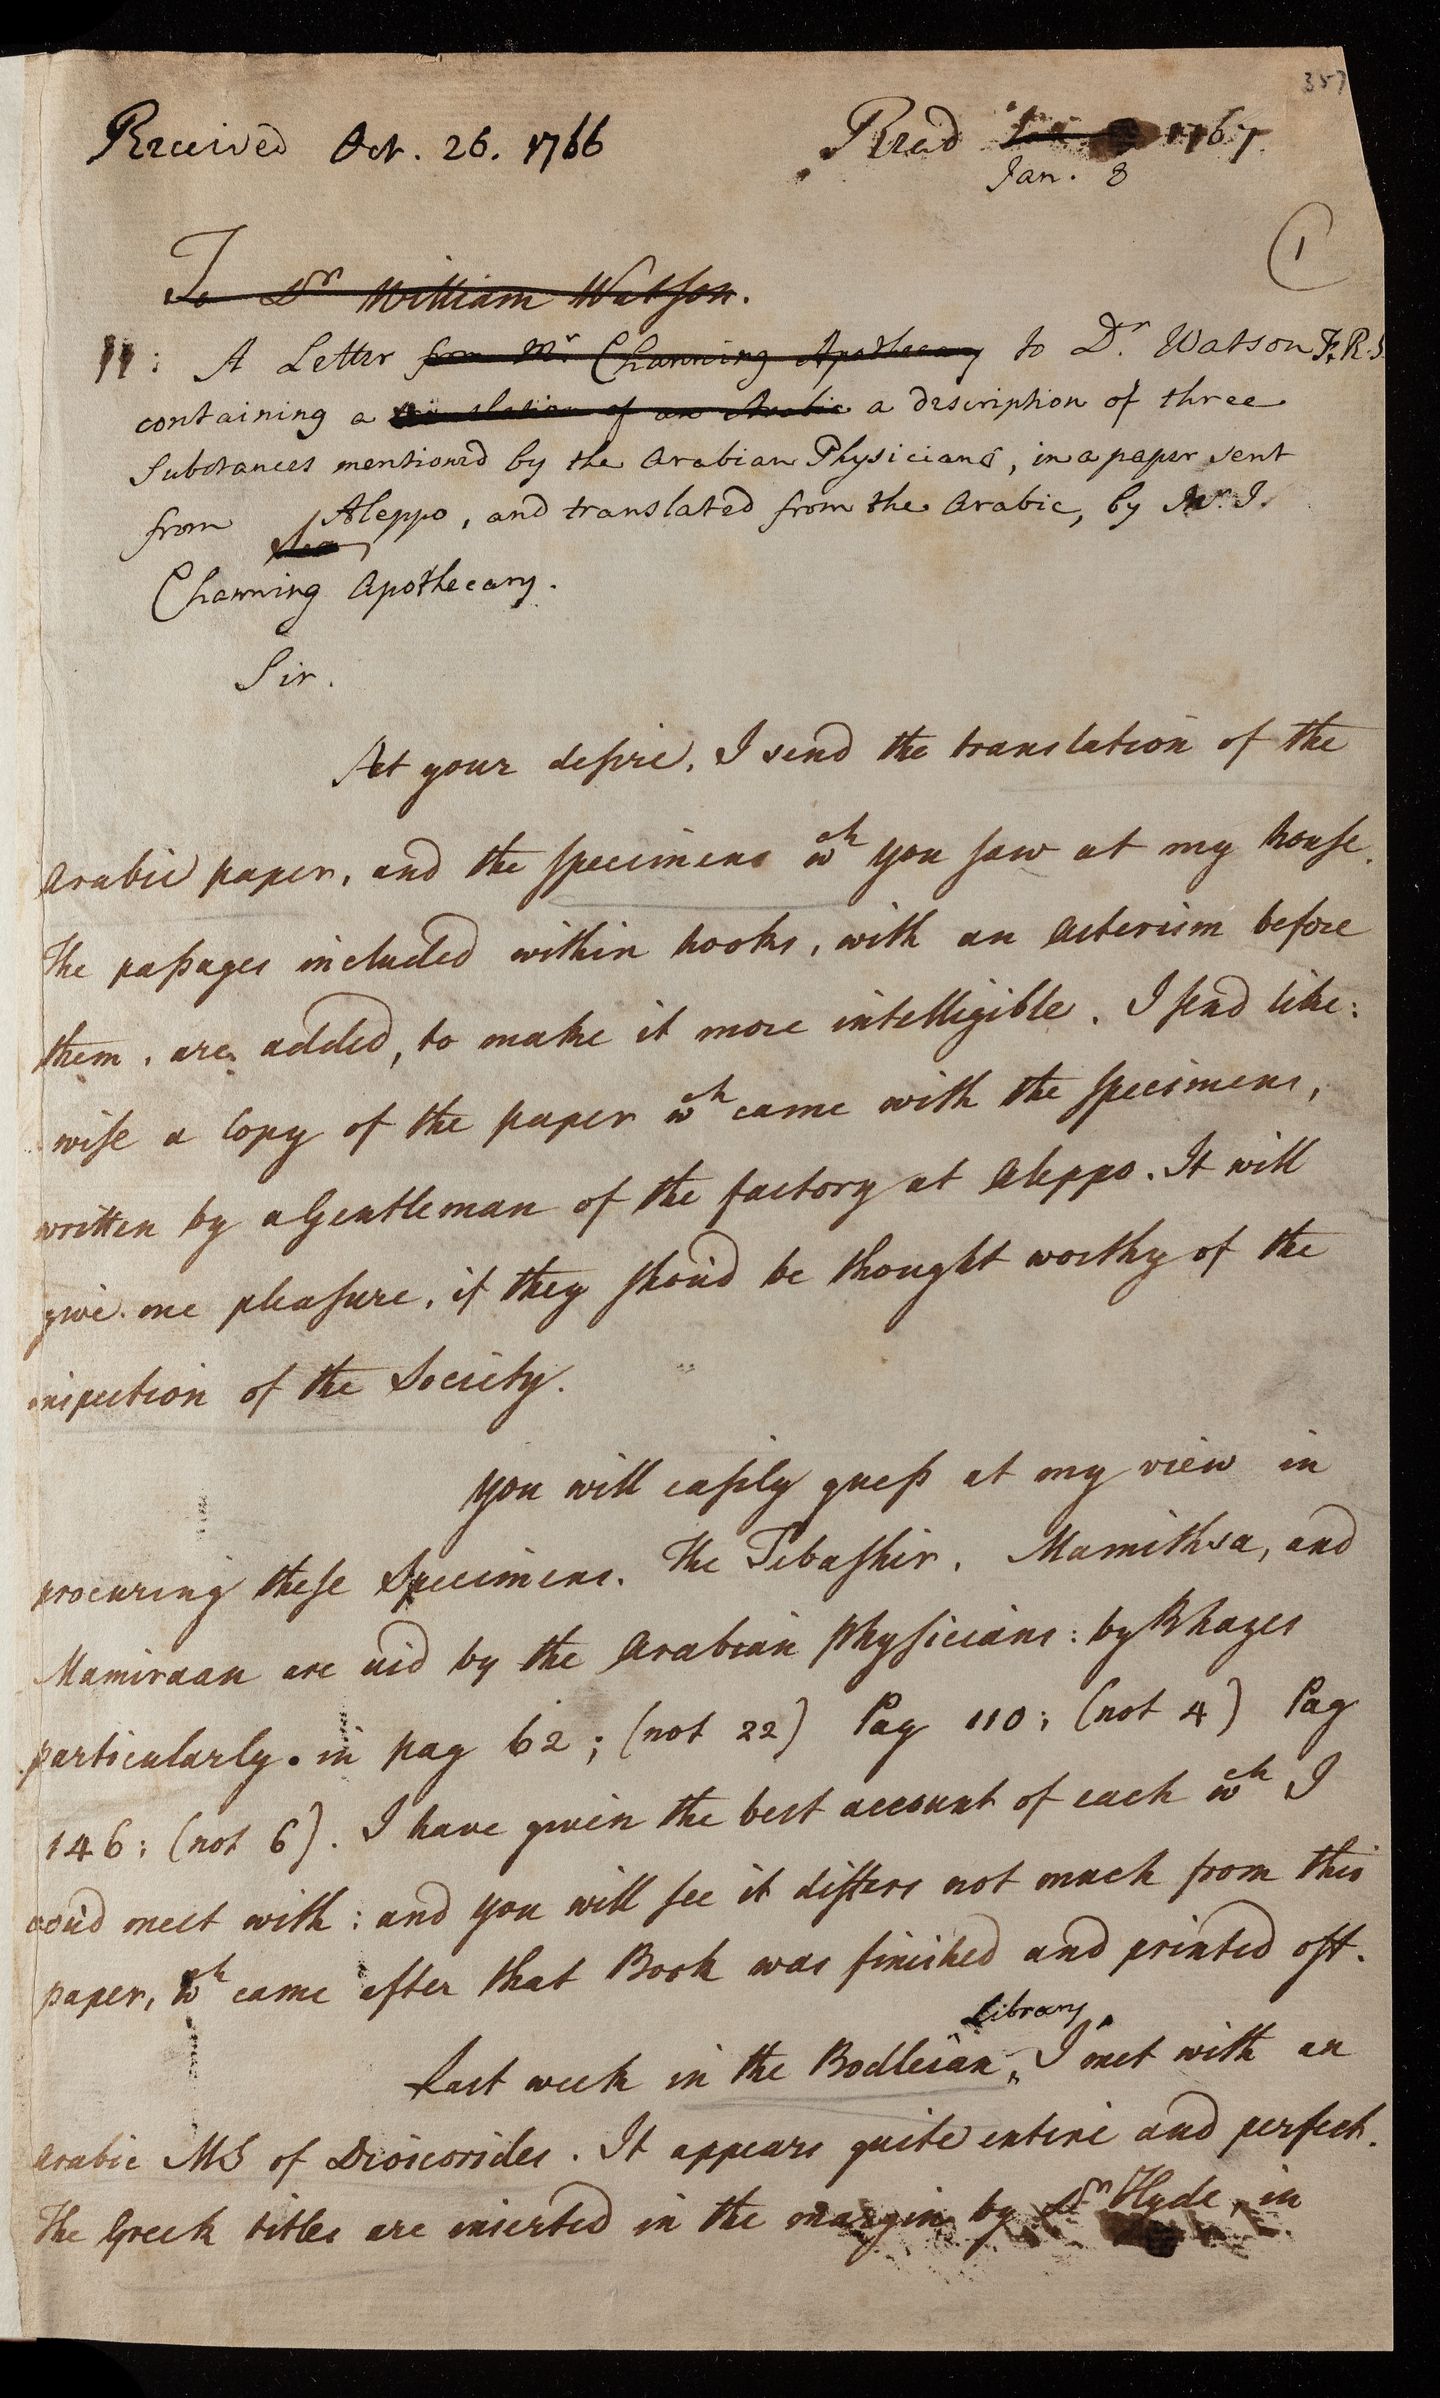 357
Received Oct. 26. 1766 Read 1767
Jan. 8
1
To Dr William Watson.
11: A Letter from Mr Channing Apothecary to Dr. Watson F.R.S.
containing a translation of an Arabic a description of three
Substances mentioned by the Arabian Physicians, in a paper sent
from Aleppo, and translated from the Arabic, by Mr. J.
Channing Apothecary.
Sir.
At your desire, I send the translation of the
Arabic paper, and the specimens wch you saw at my house.
The passages included within hooks, with an Asterism before
them, are added, to make it more intelligible. I send like:
wise a Copy of the paper wch came with the specimens,
written by a Gentleman of the factory at Aleppo. It will
give me pleasure, if they shou'd be thought worthy of the
inspection of the Society.
You will easily guess at my view in
procuring these Specimens. The Tebashir, Mamithsa, and
Mamiraan are usd by the Arabian Physicians: by Rhazes
particularly. in pag 62; (not 22) Pag 110; (not 4) Pag
146: (not 6). I have given the best account of each wch I
coud meet with: and you will see it differs not much from this
paper, wch came after that Book was finished and printed off.
Library
Last week in the Bodleian, I met with an
Arabic MS of Dioscorides. It appears quite entire and perfect.
The Greek titles are inserted in the margin by Dr Hyde, in